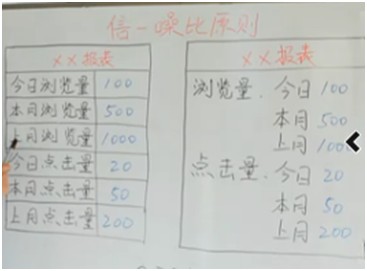 倍-噪比原则
××报表
今日浏览量 100
本月浏览量 500
上月浏览量 1000
今日点击量 20
本月点击量 50
上月点击量 200
××报表
浏览量. 今日 100
本月 500
上月 100
点击量. 今日 20
本月 50
上月 200